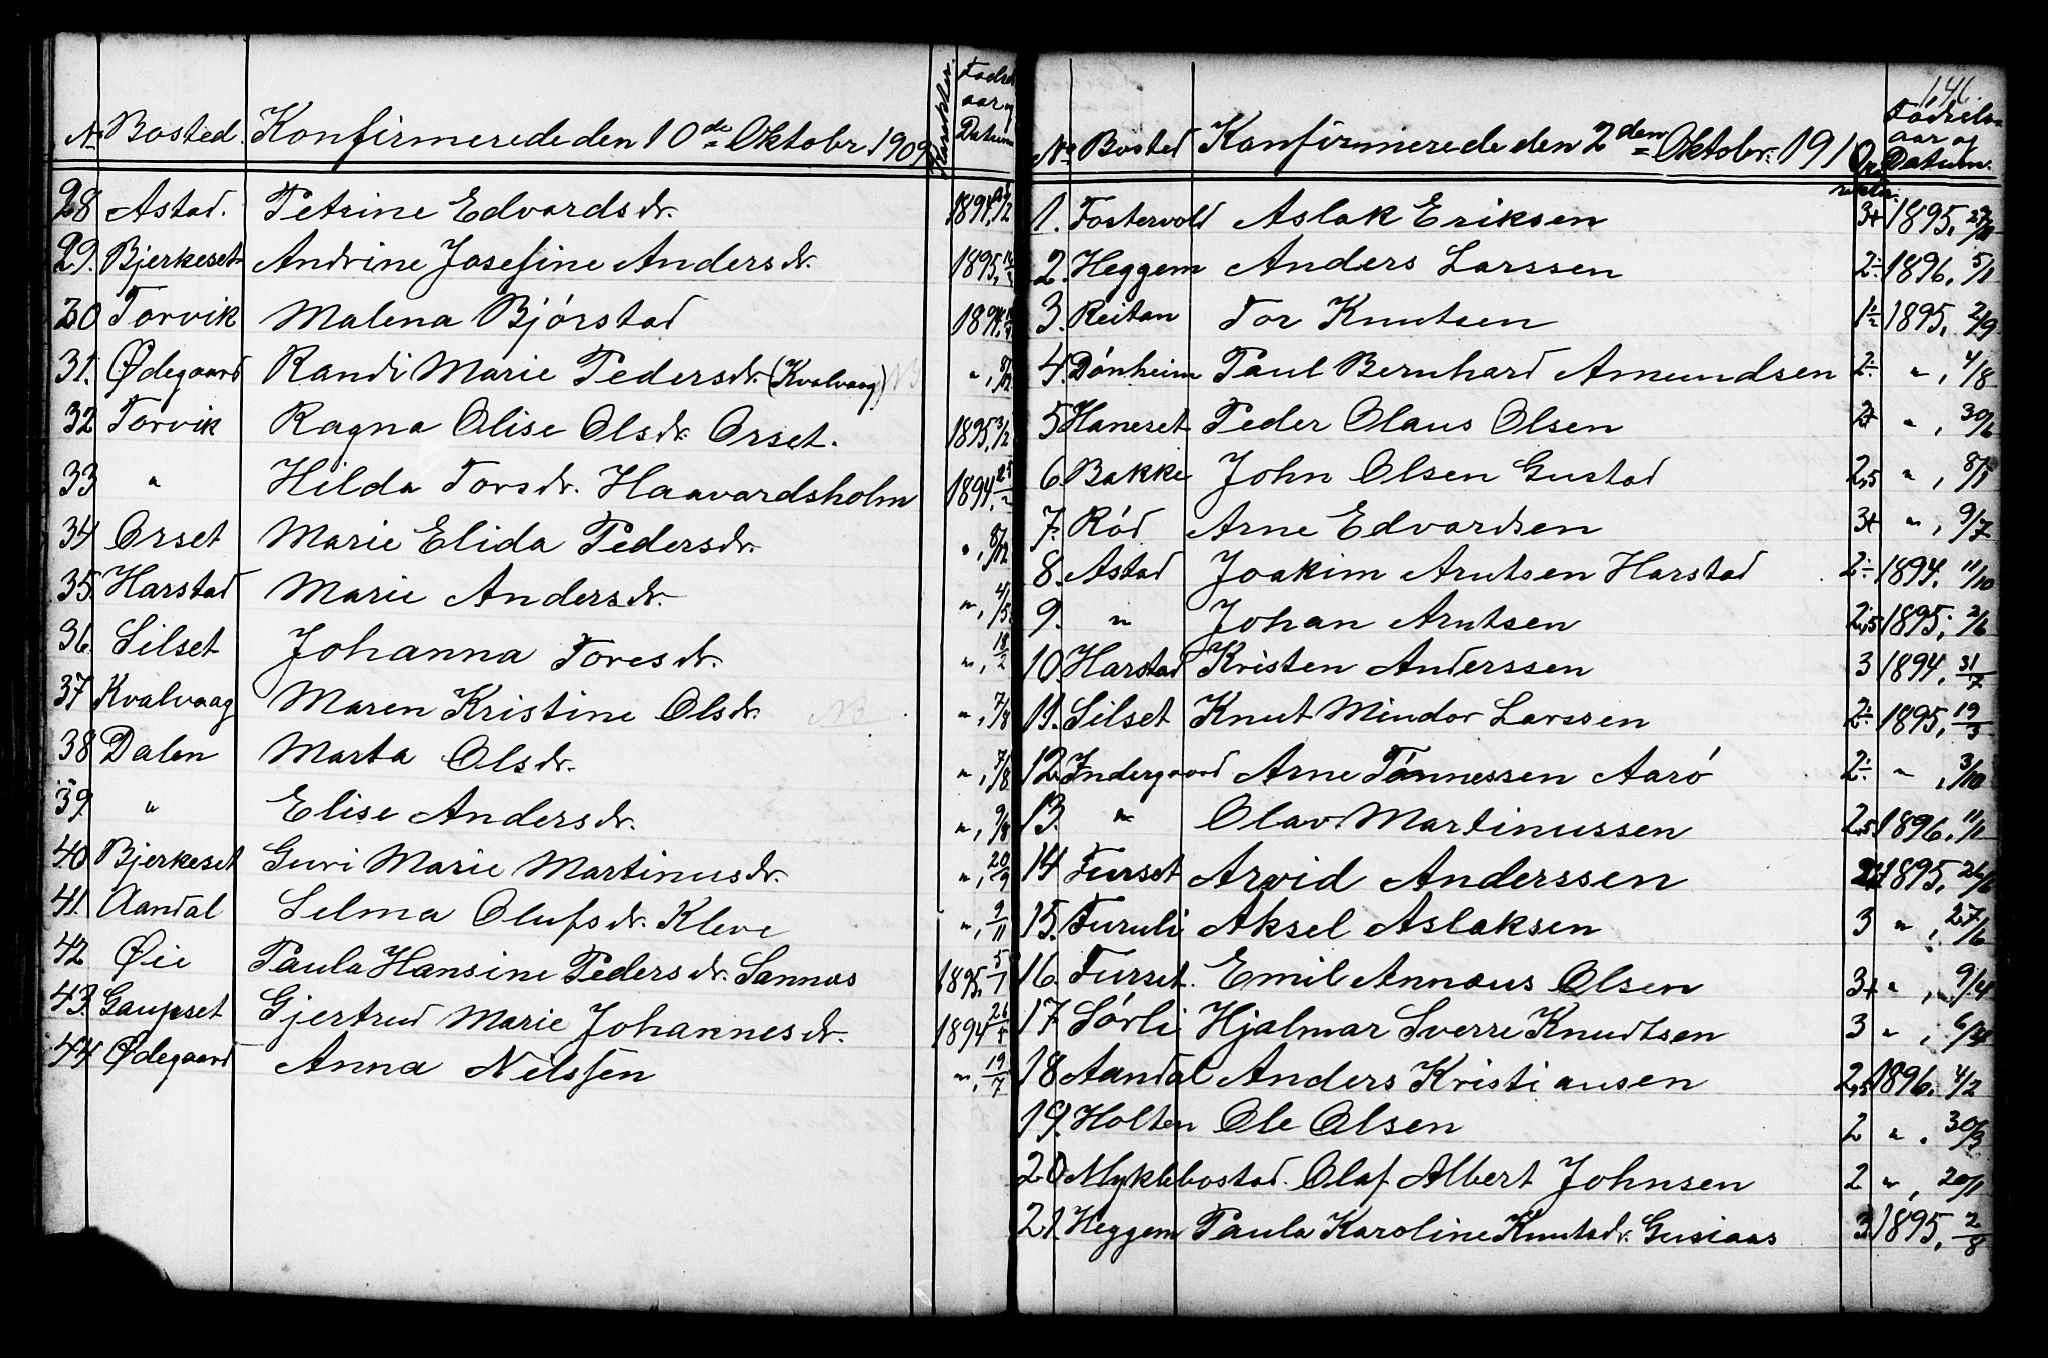 No Bosted. Konfirmerede den 10de Oktobr 1909 Karakter. Fødsels aar og Datum
28 Astad. Petrine Edvardsdr. 1894,
29. Bjerkeset Andrine Josefine Andersdr. 1895,
30 Torvik Malena Bjørstad 1894,
31. Ødegaard Randi Marie Pedersdr. (Kvalvaag) „,
32 Torvik Ragna Olise Olsdr. Orset. 1895, 3/2
33 „ Hilda Torsdr. Haavardsholm 1894,
34 Orset Marie Elida Pedersdr. „, 8/12
35. Harstad Marie Andersdr. „, 4/5.
36. Silset Johanna Toresdr. „, 18/2
37 Kvalvaag Maren Kristine Olsdr. NB „, 7/8
38 Dalen Marta Olsdr. „, 7/8
39. „ Elise Andersdr. „, 9/8
40. Bjerkeset Guri Marie Martinusdr. „, 20/9
41. Aandal Selma Olufsdr. Kleve „, 9/11
42 Øie Paula Hansine Pedersdr. Sannæs 1895, 5/1
43. Gaupset Gjertrud Marie Johannesdr. 1894 26/5
44 Ødegaard Anna Nilssen „, 19/7
146.
No Bosted Konfirmerede den 2den Oktober. 1910 Fødsels aar og Datum.
1. Fostervold Aslak Eriksen 3+ 1895,
2. Heggem Anders Larssen 2÷ 1896, 5/1
3. Reitan Tor Knutsen 1½ 1895, 2/9
4. Dønheim Paul Bernhard Amundsen 2÷ „, 4/8
5 Haneset Peder Olaus Olsen 2+ „, 30/6
6. Bakke John Olsen Gustad 2,5 „, 8/5
7. Rød Arne Edvardsen 3+ „, 9/7
8. Astad Joakim Arntsen Harstad 2÷ 1894, 11/10
9. „ Johan Arntsen 2,5 1895, 2/6
10. Harstad Kristen Anderssen 3 1894, 31/7
11. Silset Knut Mindor Larssen 2÷ 1895, 19/3
12. Indergaard Arne Tønnessen Aarø 2÷ „, 3/10
13. „ Olav Martinussen 2,5 1896, 11/1
14 Furset Arvid Anderssen 1895, 26/6
15. Furuli Aksel Aslaksen 3 „, 27/6
16. Furset. Emil Annæus Olsen 3+ „, 9/4
17 Sørli Hjalmar Sverre Knudtsen 3 „,
18 Aandal Anders Kristiansen 2,5 1896, 4/2
19. Holten Ole Olsen 2 „. 30/3
20 Myklebostad. Olaf Albert Johnsen 2 „, 20/1
21. Heggem Paula Karoline Knutsdr. Gusiaas 3. 1895, 2/8